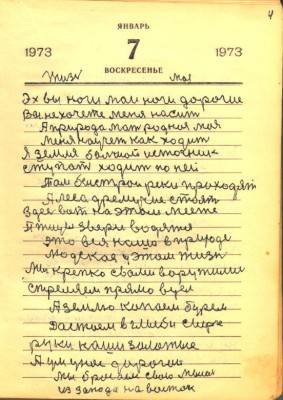 4
ЯНВАРЬ
1973 7 1973
ВОСКРЕСЕНЬЕ
Жизн моя
Эх вы ноги маи ноги дорогие
Вы не хочете меня насит
А природа мат родная мая
Меня научет как ходит
А земля болшой источник
ступат ходит по ней
Там быстрои реки приходят
А леса дремучие стоят
Здес вот на этом месте
А птици звери водятса
это вся наша в природе
Людская у этом жизн
Мы крепко своими
стреляем прямо в цел
А землю капаем бурем
Дастаем в глиби
руки наши залотие
А ум у нас дорогой
Мы бросаем свою
из запода на восток